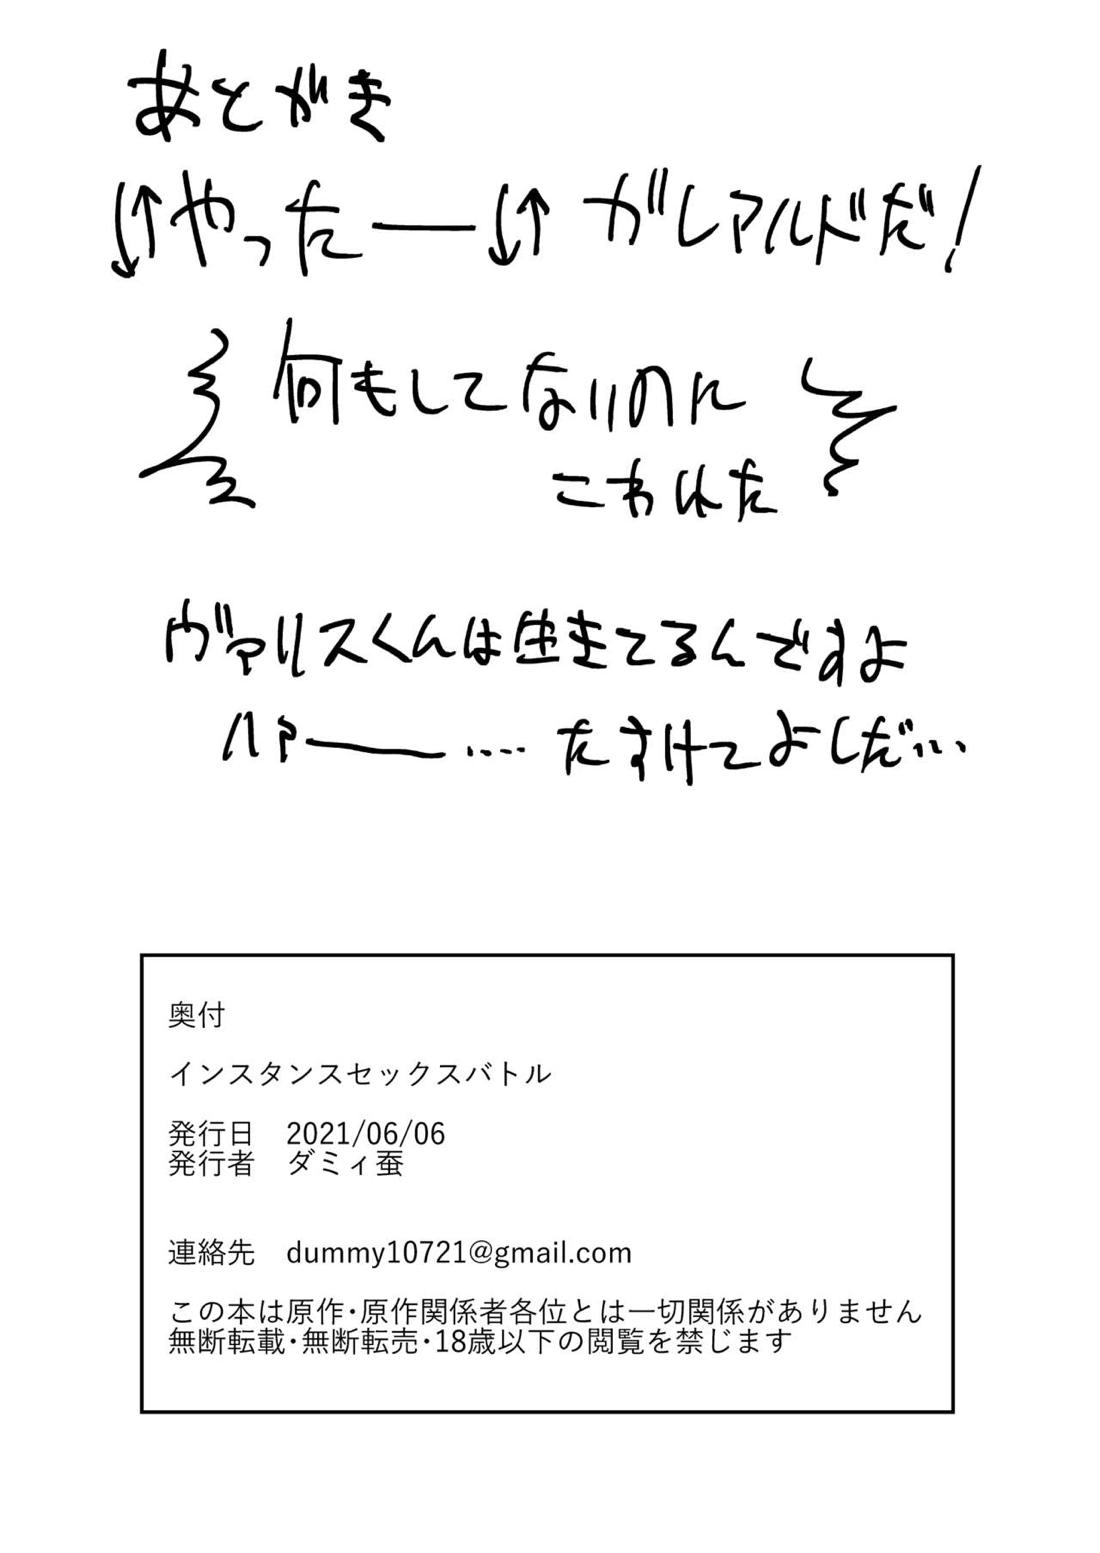 あとがき
↓↑やったー↓↑ガレアルドだ!
何もしてないのに
こわれた
ヴァリスくんは生きてるんですよ
ハァー…. たすけてよしだ…
奥付
インスタンスセックスバトル
発行日 2021/06/06
発行者 ダミィ蚕
連絡先 dummy10721@gmail.com
この本は原作･原作関係者各位とは一切関係がありません
無断転載･無断転売･18歳以下の閲覧を禁じます